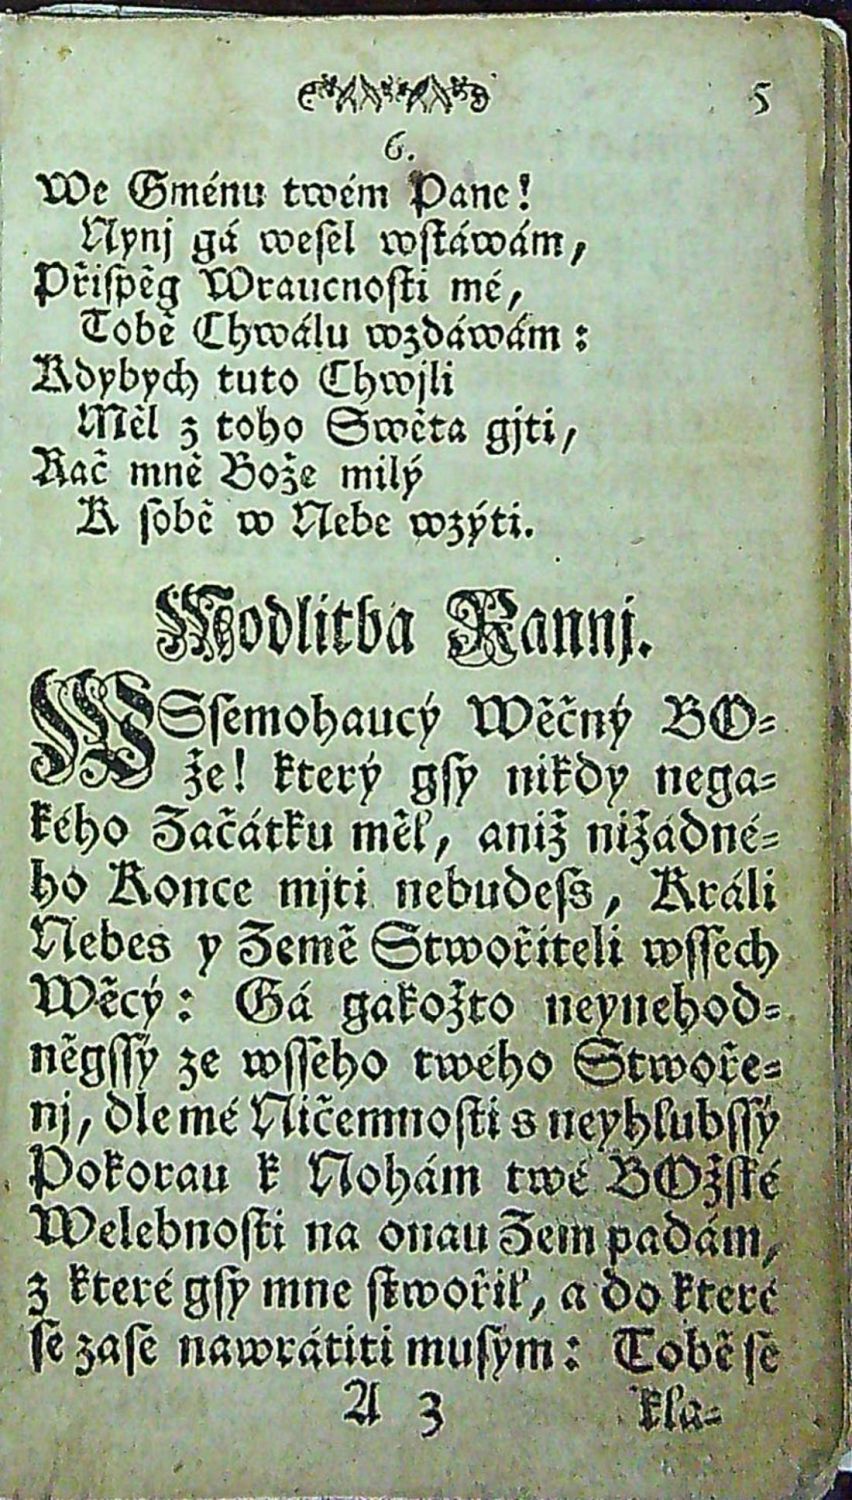 5
6.
We Gménu twém Pane!
Nynj gá weſel wſtáwám,
Přiſpěg Wraucnoſti mé,
Tobě Chwálu wzdáwám:
Kdybych tuto Chwjli
Měl z toho Swěta gjti,
Rač mně Bože milý
K ſobě w Nebe wzýti.
Modlitba Rannj.
WSſemohaucý Wěčný BO-
že! který gſy nikdy nega-
kého Začátku měl, aniž nižádné-
ho Konce mjti nebudeſs, Králi
Nebes y Země Stwořiteli wſſech
Wěcý: Gá gakožto neynehod-
něgſſý ze wſſeho twého Stwoře-
nj, dle mé Ničemnoſti s neyhlubſſý
Pokorau k Nohám twé BOžſké
Welebnoſti na onau Zem padám,
z které gſy mne ſtwořil, a do které
ſe zaſe nawrátiti muſým: Tobě ſe
A 3 kla-